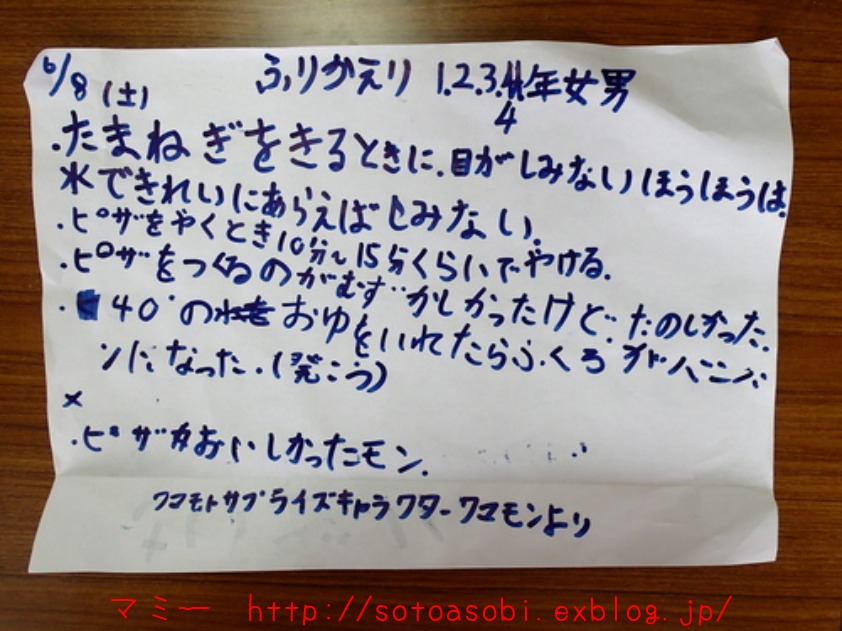 6/8(土) ふりかえり 1.2.3.4年女男
4
・たまねぎをきるときに.目がしみないほうほうは.
水できれいにあらえばしみない.
・ピザをやくとき10分〜15分くらいでやける.
・ピザをつくるのがむずかしかったけど.たのしかった.
・40°のおゆをいれてたらふくろがパンパ
ンになった.(発こう)
×
・ピザがおいしかったモン.
クマモトサプライズキャラクタークマモンより
マミー http://sotoasobi.exblog.jp/